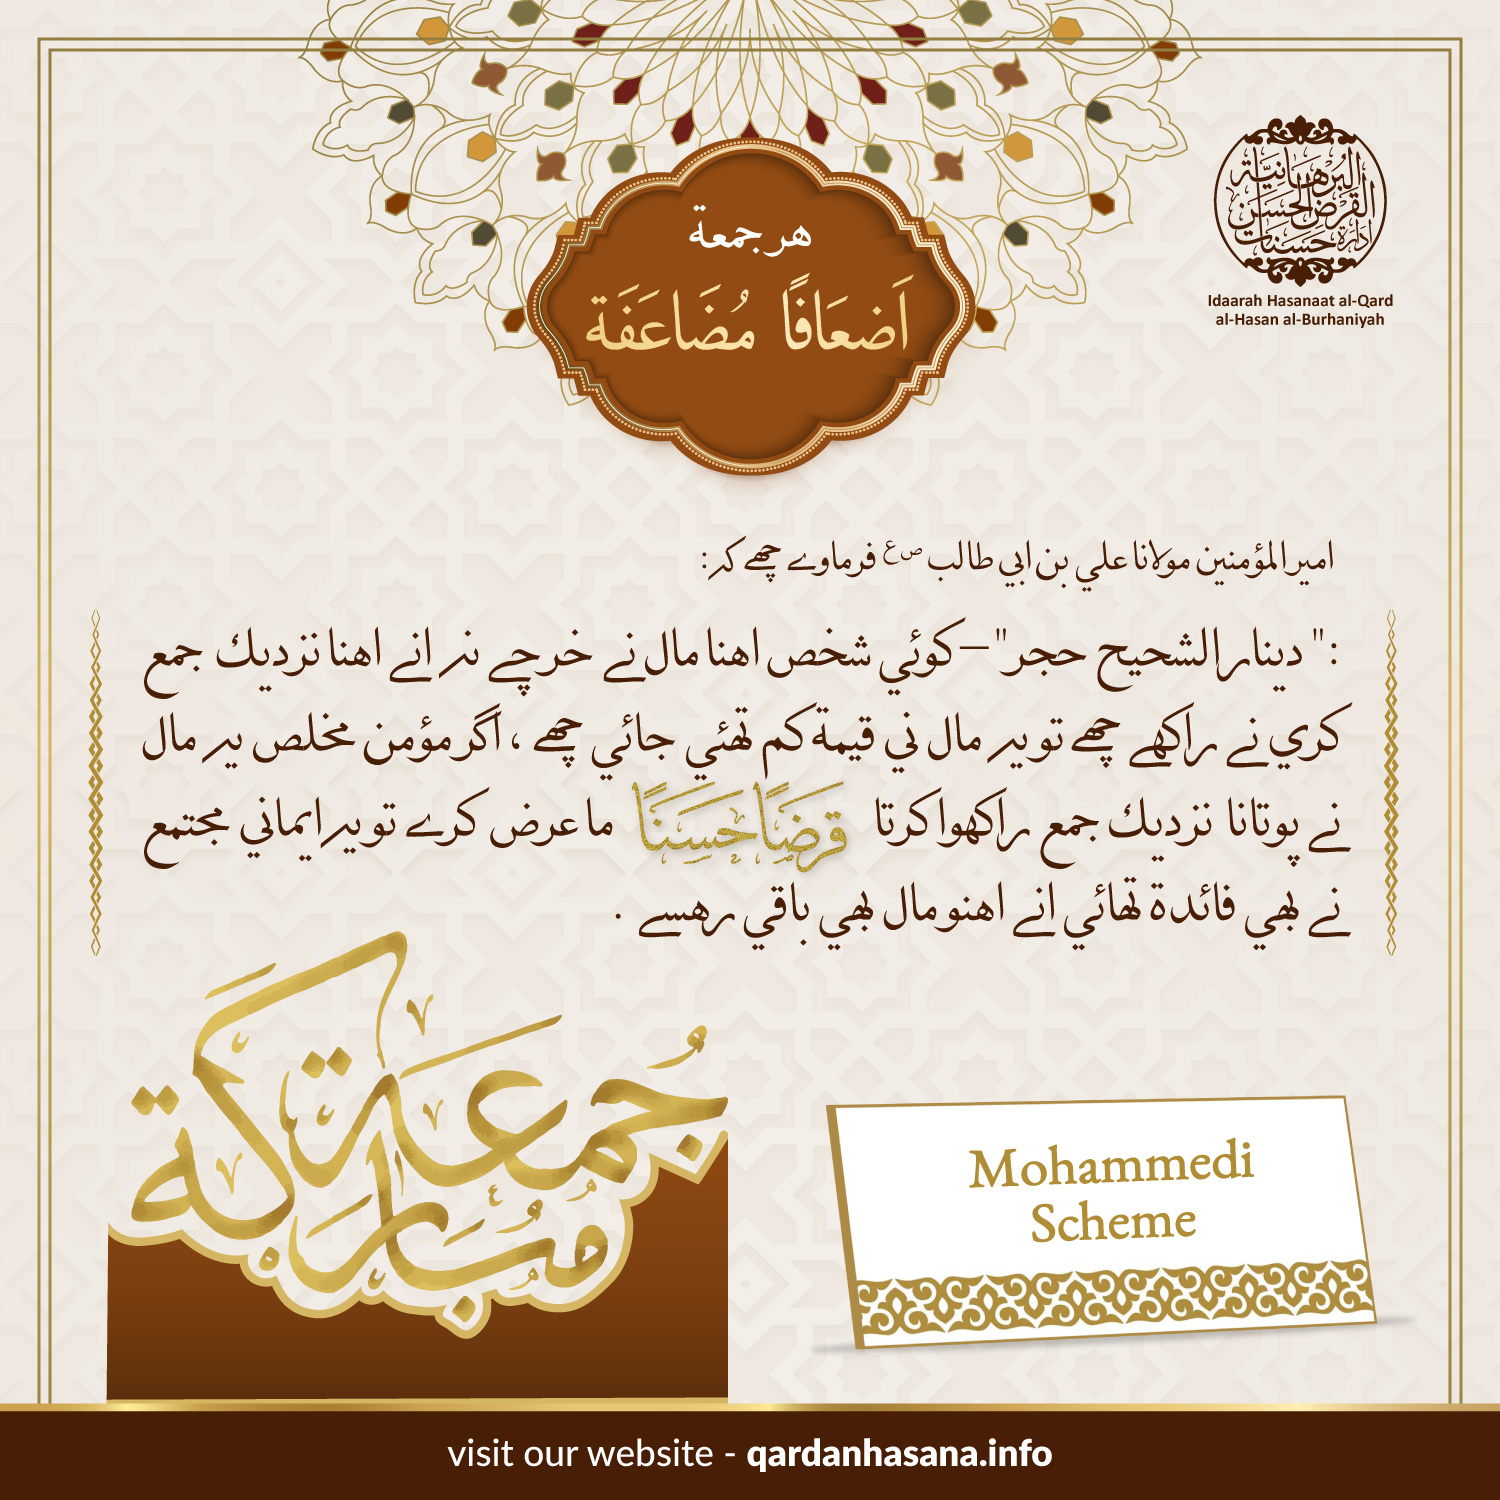 هر جمعة
اَضعَافًا مُضَاعَفَة
البُرْهَانِيَّة
القَرْضِ الحَسَن
اِدَارَة حَسَنَات
Idaarah Hasanaat al-Qard
al-Hasan al-Burhaniyah
امير المؤمنين مولانا علي بن ابي طالب ص ع فرماوے چھے كہ:
:" دينار الشحيح حجر"–كوئي شخص اهنا مال نے خرچے نہ انے اهنا نزديك جمع
كري نے راكھے چھے تو يہ مال ني قيمة كم تھئي جائي چھے ، اگر مؤمن مخلص يہ مال
نے پوتانا نزديك جمع راكھوا كرتا قَرضًا حَسَنًا ما عرض كرے تو يہ ايماني مجتمع
نے بھي فائدة تھائي انے اهنو مال بھي باقي رهسے .
جُمعَة
مُبَارَكَة
Mohammedi
Scheme
visit our website - qardanhasana.info